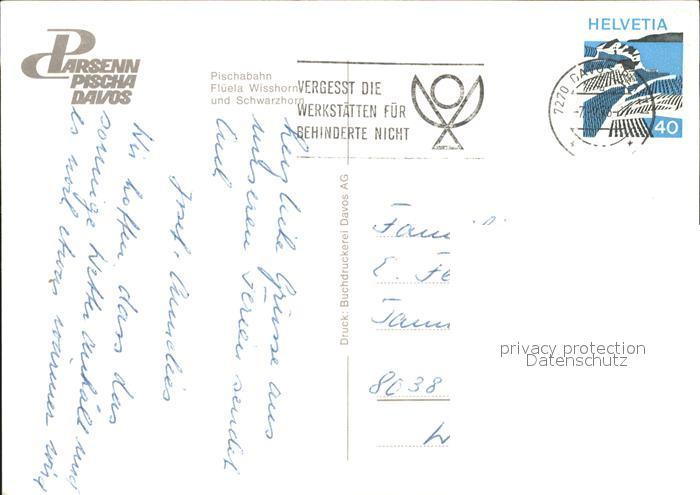 PARSENN
PISCHA
DAVOS
Pischabahn
Flüela Wisshorn
und Schwarzhorn
VERGESST DIE
WERKSTÄTTEN FÜR
BEHINDERTE NICHT
HELVETIA
7270 DAVOS
40
Herzliche Grüsse aus
unseren Ferien sendet
Euch
Josef. Annelies
Wir hoffen dass das
sonnige Wetter anhält und
es noch etwas wärmer wird
Druck: Buchdruckerei Davos AG
Fam
E. Fe
Tann
8038
privacy protection
Datenschutz